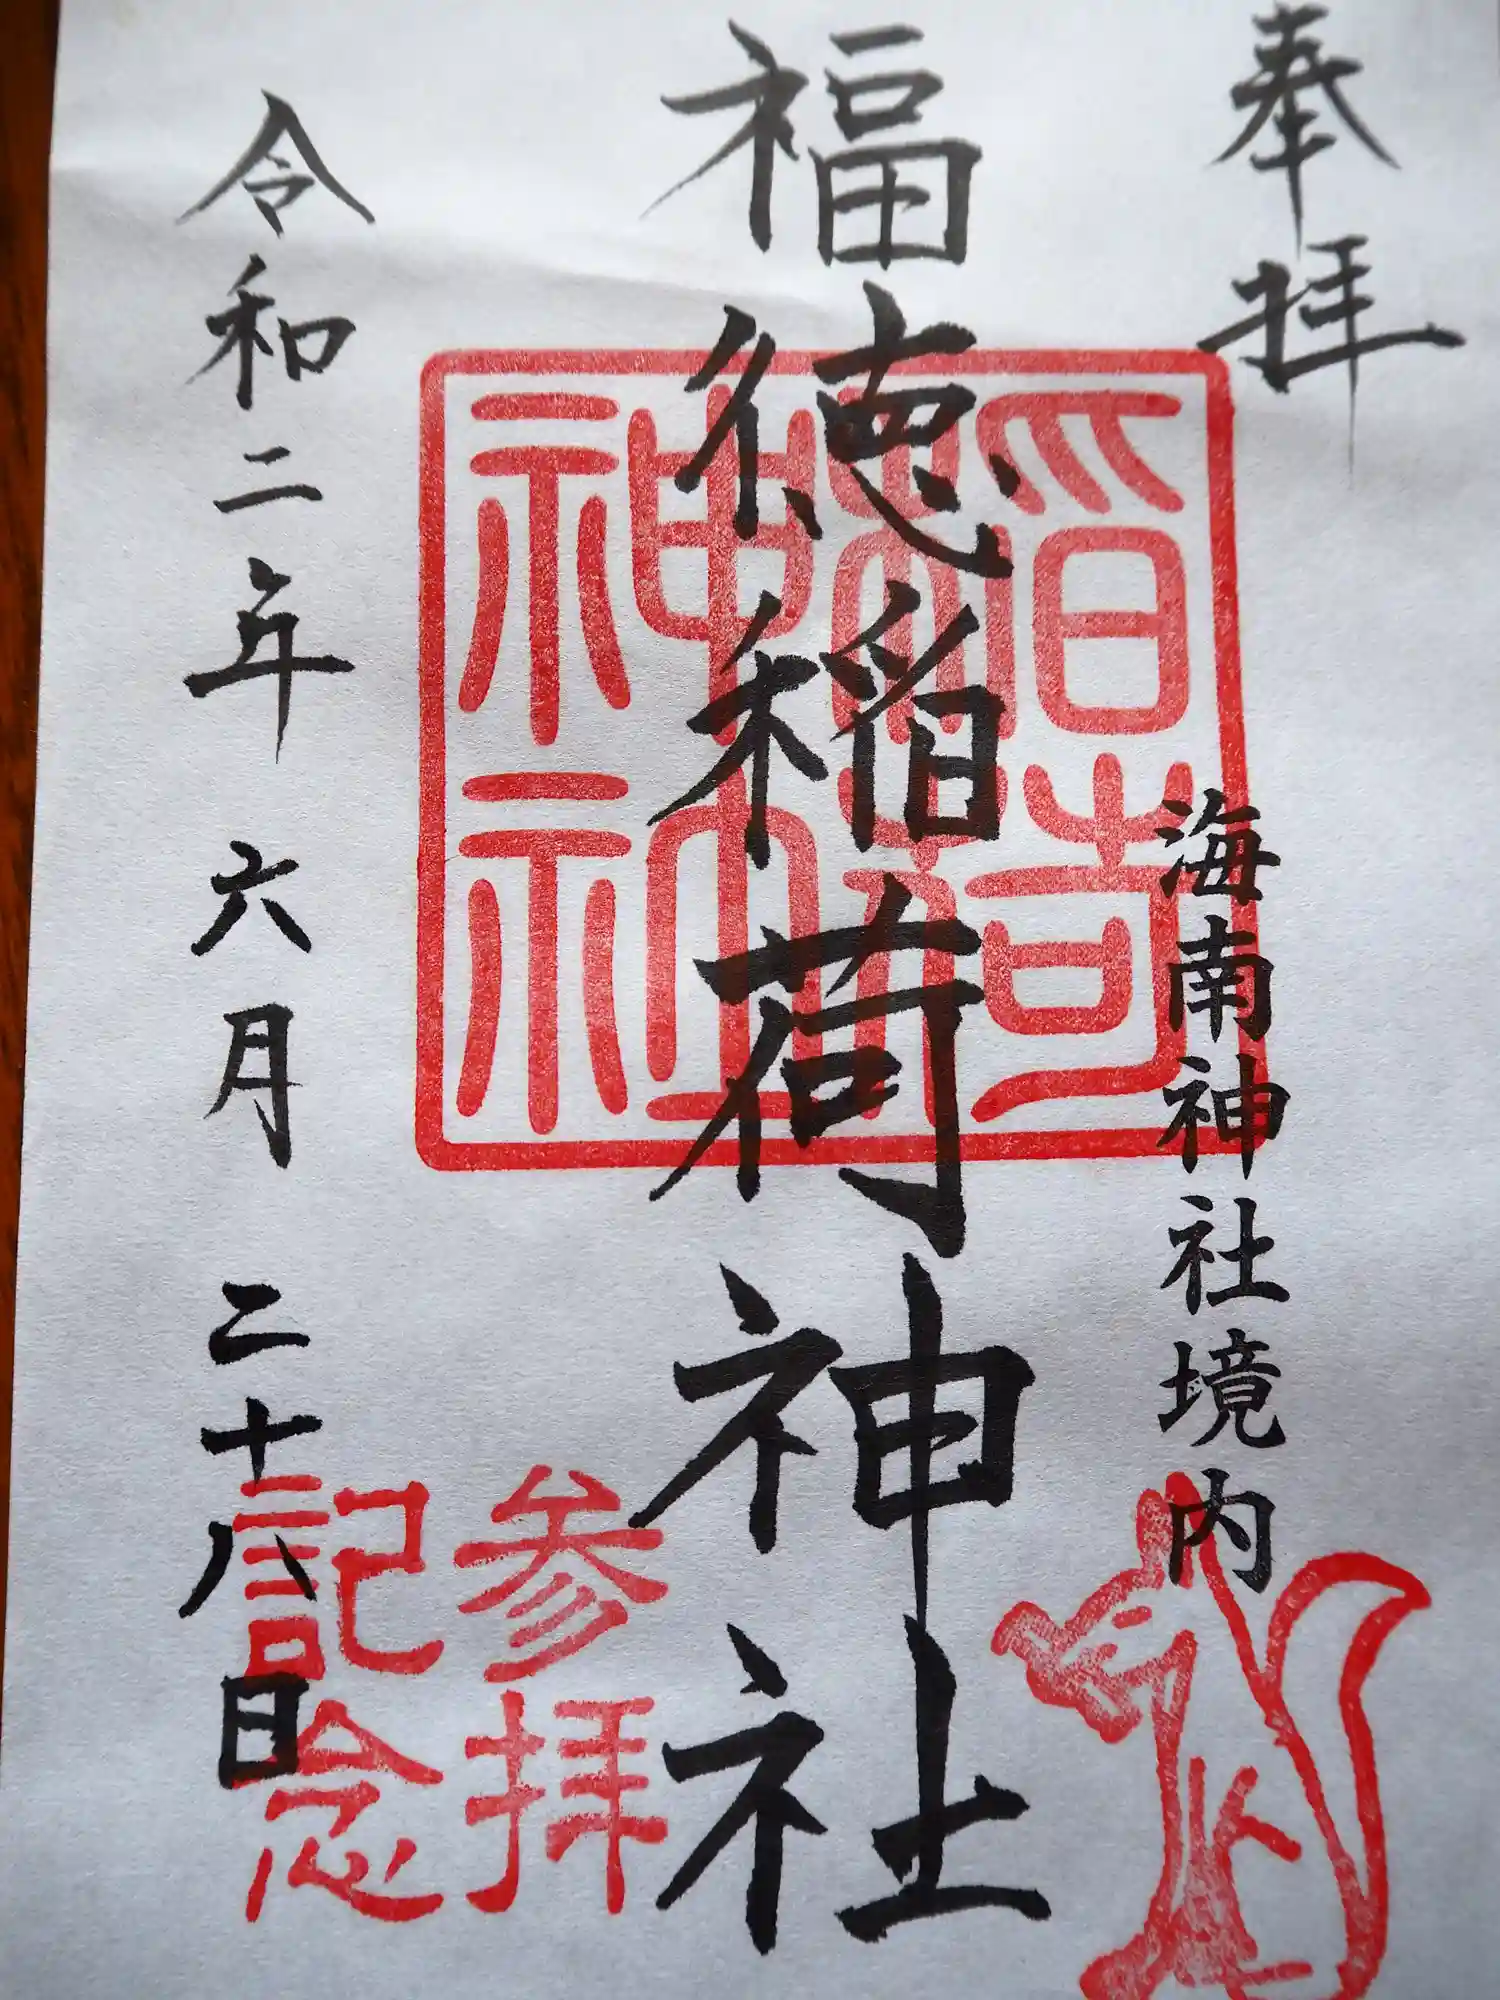 奉拝
海南神社境内
福徳稲荷神社
令和二年六月二十八日
稲荷
神社
参拝
記念